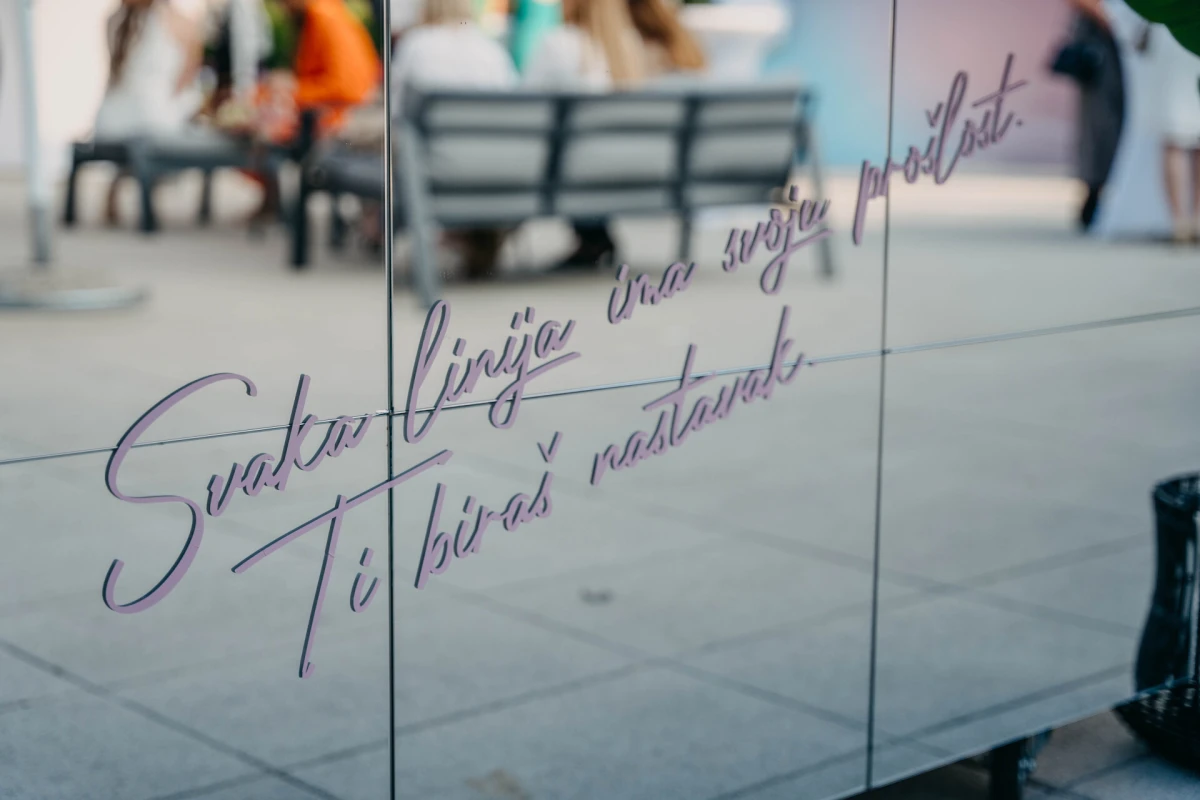 Svaka linija ima svoju prošlost.
Ti biraš nastavak